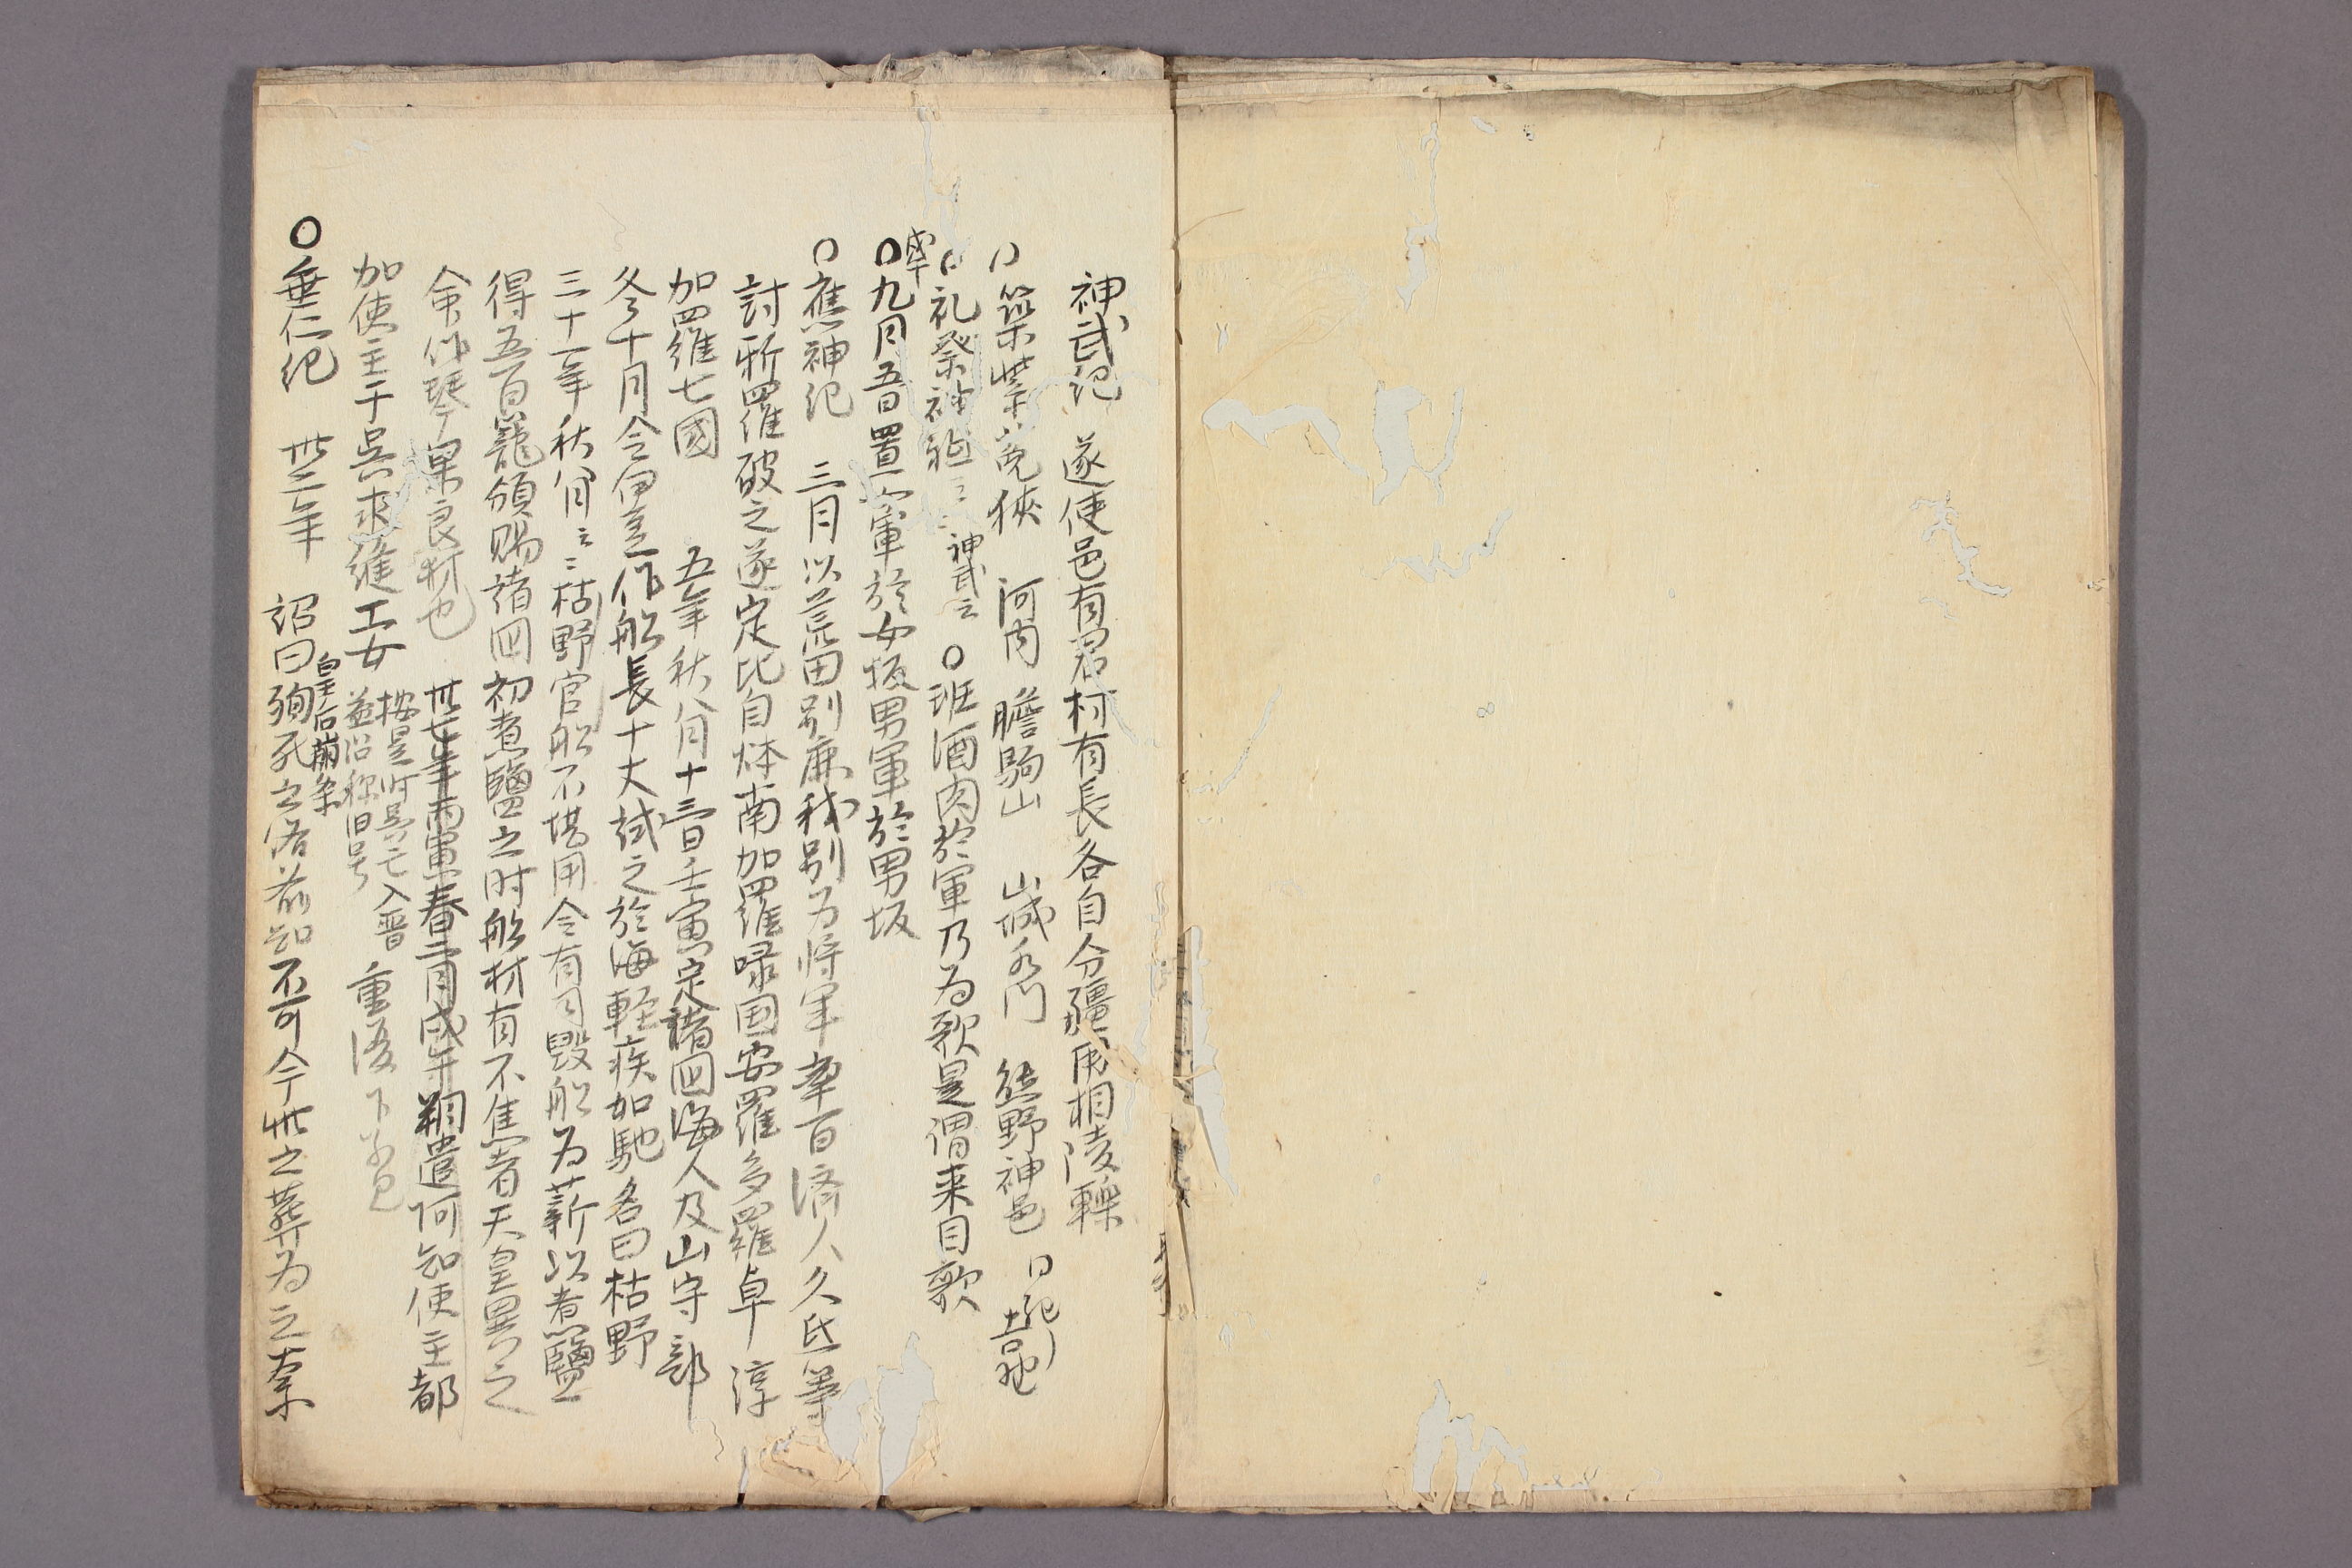 神武紀 遂使邑有君村有長各自分疆用相陵轢
○築紫菟狭 河内 膽駒山 山城水門 熊野神邑 ○
○礼祭神祇云云 神武云 ○班酒肉於軍乃為歌是謂来目歌
○九月五日置女軍於女坂男軍於男坂
○應神紀 三月以荒田別鹿我別為将軍 率百濟人久氐等
討新羅破之遂定比自㶱南加羅㖨国安羅多羅卓淳
加羅七國 五年秋八月十三日壬寅定諸国海人及山守部
冬十月令伊豆作船長十丈試之於海軽疾如馳名曰枯野
三十一年秋八月云云枯野官船不堪用令有司毀船為薪以煮鹽
得五百籠頒賜諸国初煮鹽之时船材有不焦者天皇異之
令作琴果良材也 卅七年丙寅春二月戊午朔遣阿知使主都
加使主于呉求縫工女 按是时呉亡入晋
益沿称旧号
皇后崩条
○垂仁紀 卅二年 詔曰殉死之 前知不可今此之葬為之奈